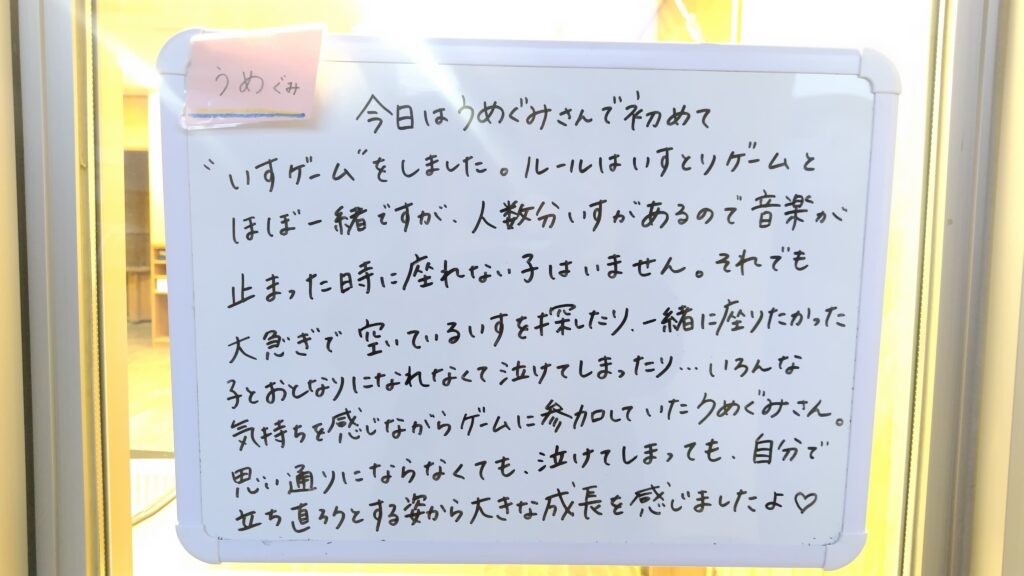 うめぐみ
今日はうめぐみさんで初めて
"いすゲーム"をしました。ルールはいすとりゲームと
ほぼ一緒ですが、人数分いすがあるので音楽が
止まった日時に座れない子はいません。それでも
大急ぎで空いているいすを探したり、一緒に座りたかった
子とおとなりになれなくて泣けてしまったり…いろんな
気持ちを感じながらゲームに参加していたうめぐみさん。
思い通りにならなくても、泣けてしまっても、自分で
立ち直ろうとする姿から大きな成長を感じましたよ♡